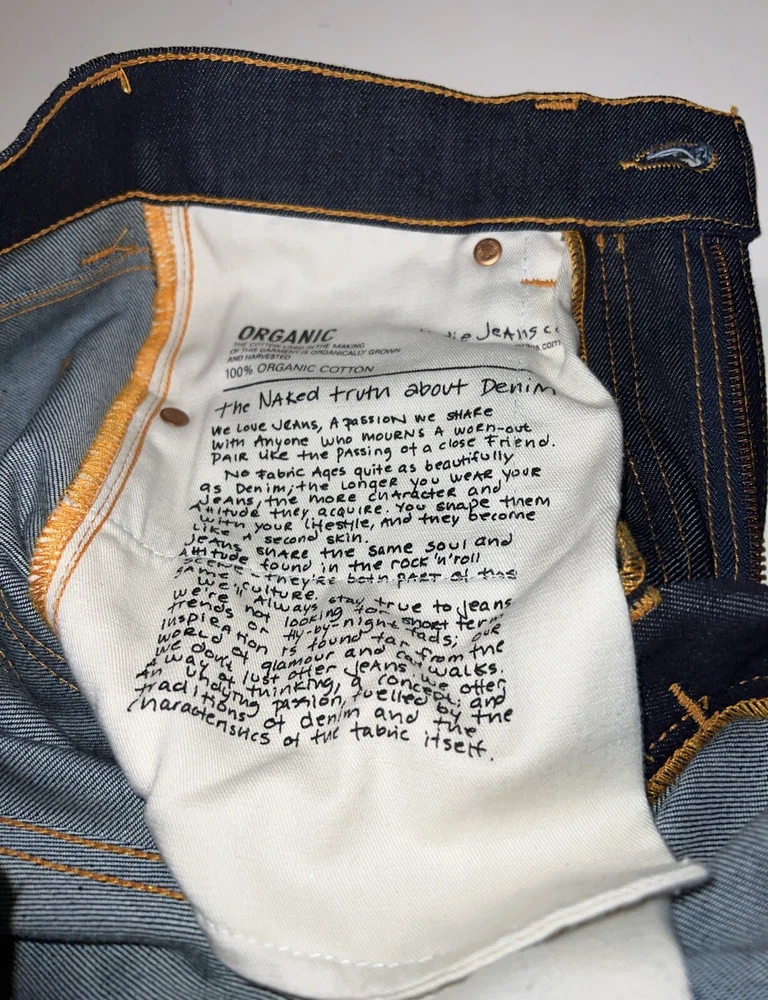 ORGANIC
THE COTTON USED IN THE MAKING
OF THIS GARMENT IS ORGANICALLY GROWN
AND HARVESTED
100% ORGANIC COTTON
die JeANs c
.com
the NAKed truth about Denim
we Love JeANs, A pAssioN we sHARe
with Anyone who mourNs A worn-out
pAiR Like the pAssing of a close Friend.
No FAbric Ages quite as beautifully
as Denim; the Longer you weAR your
JeANs, the more cHARActer and
Attitude they Acquire. You shape them
with your Lifestyle, And they become
Like A second skin.
JeANs sHARe the same soul and
Attitude found in the rock'n'roll
sceNe. they're both pARt of the
sAme culture.
we'll Always stay true to JeANs
we're not looking for short term
trends or fly-by-night fads; our
inspiration is found far from the
world of glamour and catwalks.
we don't just offer JeANs we offer
A way of thinking, a concept; and
An undying passion, fuelled by the
traditions of denim and the
characteristics of the fabric itself.